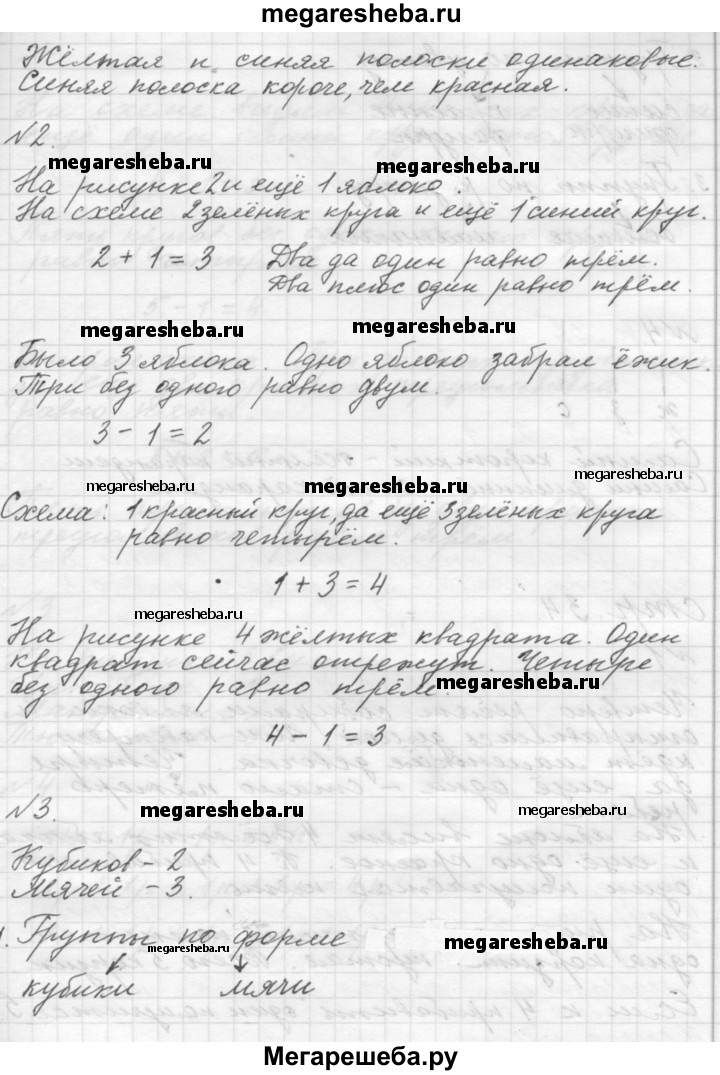 megaresheba.ru
Жёлтая и синяя полоски одинаковые.
Синяя полоска короче, чем красная.
№2.
megaresheba.ru
megaresheba.ru
На рисунке 2 и ещё 1 яблоко.
На схеме 2 зелёных круга и ещё 1 синий круг.
2 + 1 = 3 Два да один равно трём.
Два плюс один равно трём.
megaresheba.ru
megaresheba.ru
Было 3 яблока. Одно яблоко забрал ёжик.
Три без одного равно двум.
3 - 1 = 2
megaresheba.ru
megaresheba.ru
megaresheba.ru
Схема: 1 красный круг, да ещё 3 зелёных круга
равно четырём.
1 + 3 = 4
megaresheba.ru
На рисунке 4 жёлтых квадрата. Один
квадрат сейчас отрежут. Четыре
без одного равно трём.
megaresheba.ru
4 - 1 = 3
№3.
megaresheba.ru
megaresheba.ru
Кубиков - 2
Мячей - 3.
1. Группы по форме
megaresheba.ru
megaresheba.ru
кубики мячи
Мегарешеба.ру